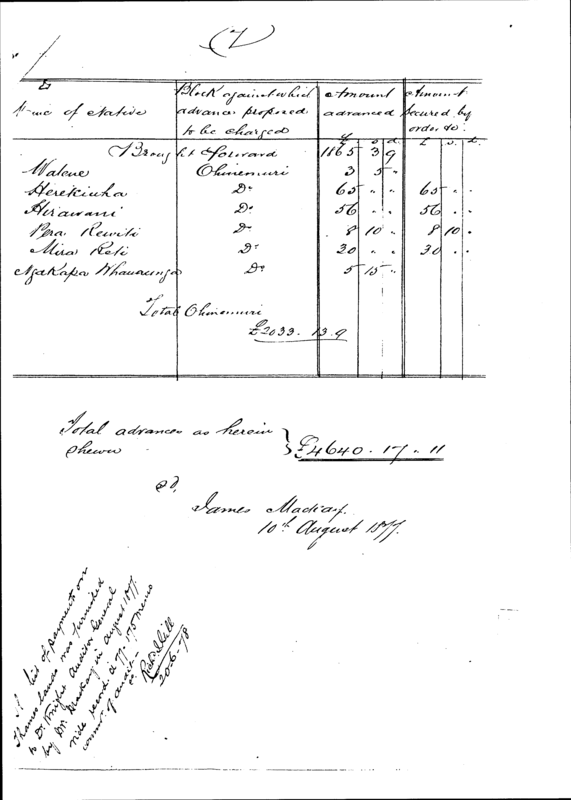 (7)
Name of Native | Block against which advance proposed to be charged | Amount advanced | Amount secured by order &c.
£ s. d. | £ s. d.
Brought Forward 1865 3 9
Waline Ohinemuri 3 5 "
Herekiuha Do 65 " " 65 " "
Hirawani Do 56 " " 56 " "
Pera Rewiti Do 8 10 " 8 10 "
Mira Reti Do 30 " " 30 " "
Ngakapa Whanaunga Do 5 15 "
Total Ohinemuri
£2033 . 13 . 9
Total advances as herein
shewn } £4640 . 17 . 11
sd,
James Mackay.
10th August 1877.
A list of payments on
Thames lands was furnished
to Dr. Knight Auditor General
by Mr. Mackay in August 1877.
vide record a 77.175 memo
commr. of audit
Richd. Gill
20-6-78